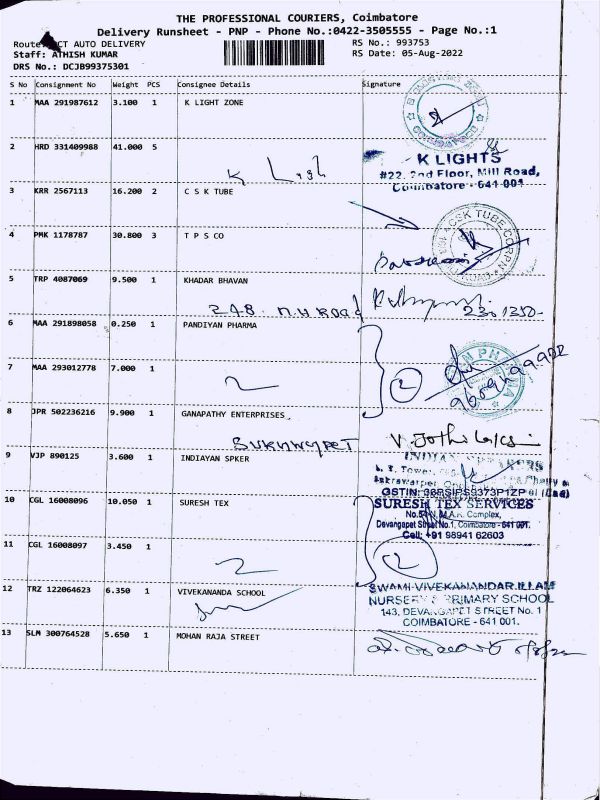 THE PROFESSIONAL COURIERS, Coimbatore
Delivery Runsheet - PNP - Phone No.:0422-3505555 - Page No.:1
CT AUTO DELIVERY
RS No.: 993753
Staff: ATHISH KUMAR
RS Date: 05-Aug-2022
DRS No.: DCJB99375301
S No Consignment No Weight PCS Consignee Details Signature
1 MAA 291987612 3.100 1 K LIGHT ZONE
2 HRD 331409988 41.000 5
K LIGHTS
#22, 2nd Floor, Mill Road,
Coimbatore - 641 001
3 KRR 2567113 16.200 2 C S K TUBE
CSK TUBE CORPN
4 PMK 1178787 30.800 3 T P S CO
5 TRP 4087069 9.500 1 KHADAR BHAVAN
248 N.H ROAD
6 MAA 291898058 0.250 1 PANDIYAN PHARMA
7 MAA 293012778 7.000 1
2
8 JPR 502236216 9.900 1 GANAPATHY ENTERPRISES
V. Jothi
9 VJP 890125 3.600 1 INDIAYAN SPKER
10 CGL 16008096 10.050 1 SURESH TEX
SURESH TEX SERVICES
Complex,
Devangapet Street No.1, Coimbatore - 641 001.
Cell: +91 98941 62603
11 CGL 16008097 3.450 1
2
12 TRZ 122064623 6.350 1 VIVEKANANDA SCHOOL
SWAMI VIVEKANANDAR ILLAM
NURSERY & PRIMARY SCHOOL
143, DEVANGAPET STREET No. 1
COIMBATORE - 641 001.
13 SLM 300764528 5.650 1 MOHAN RAJA STREET